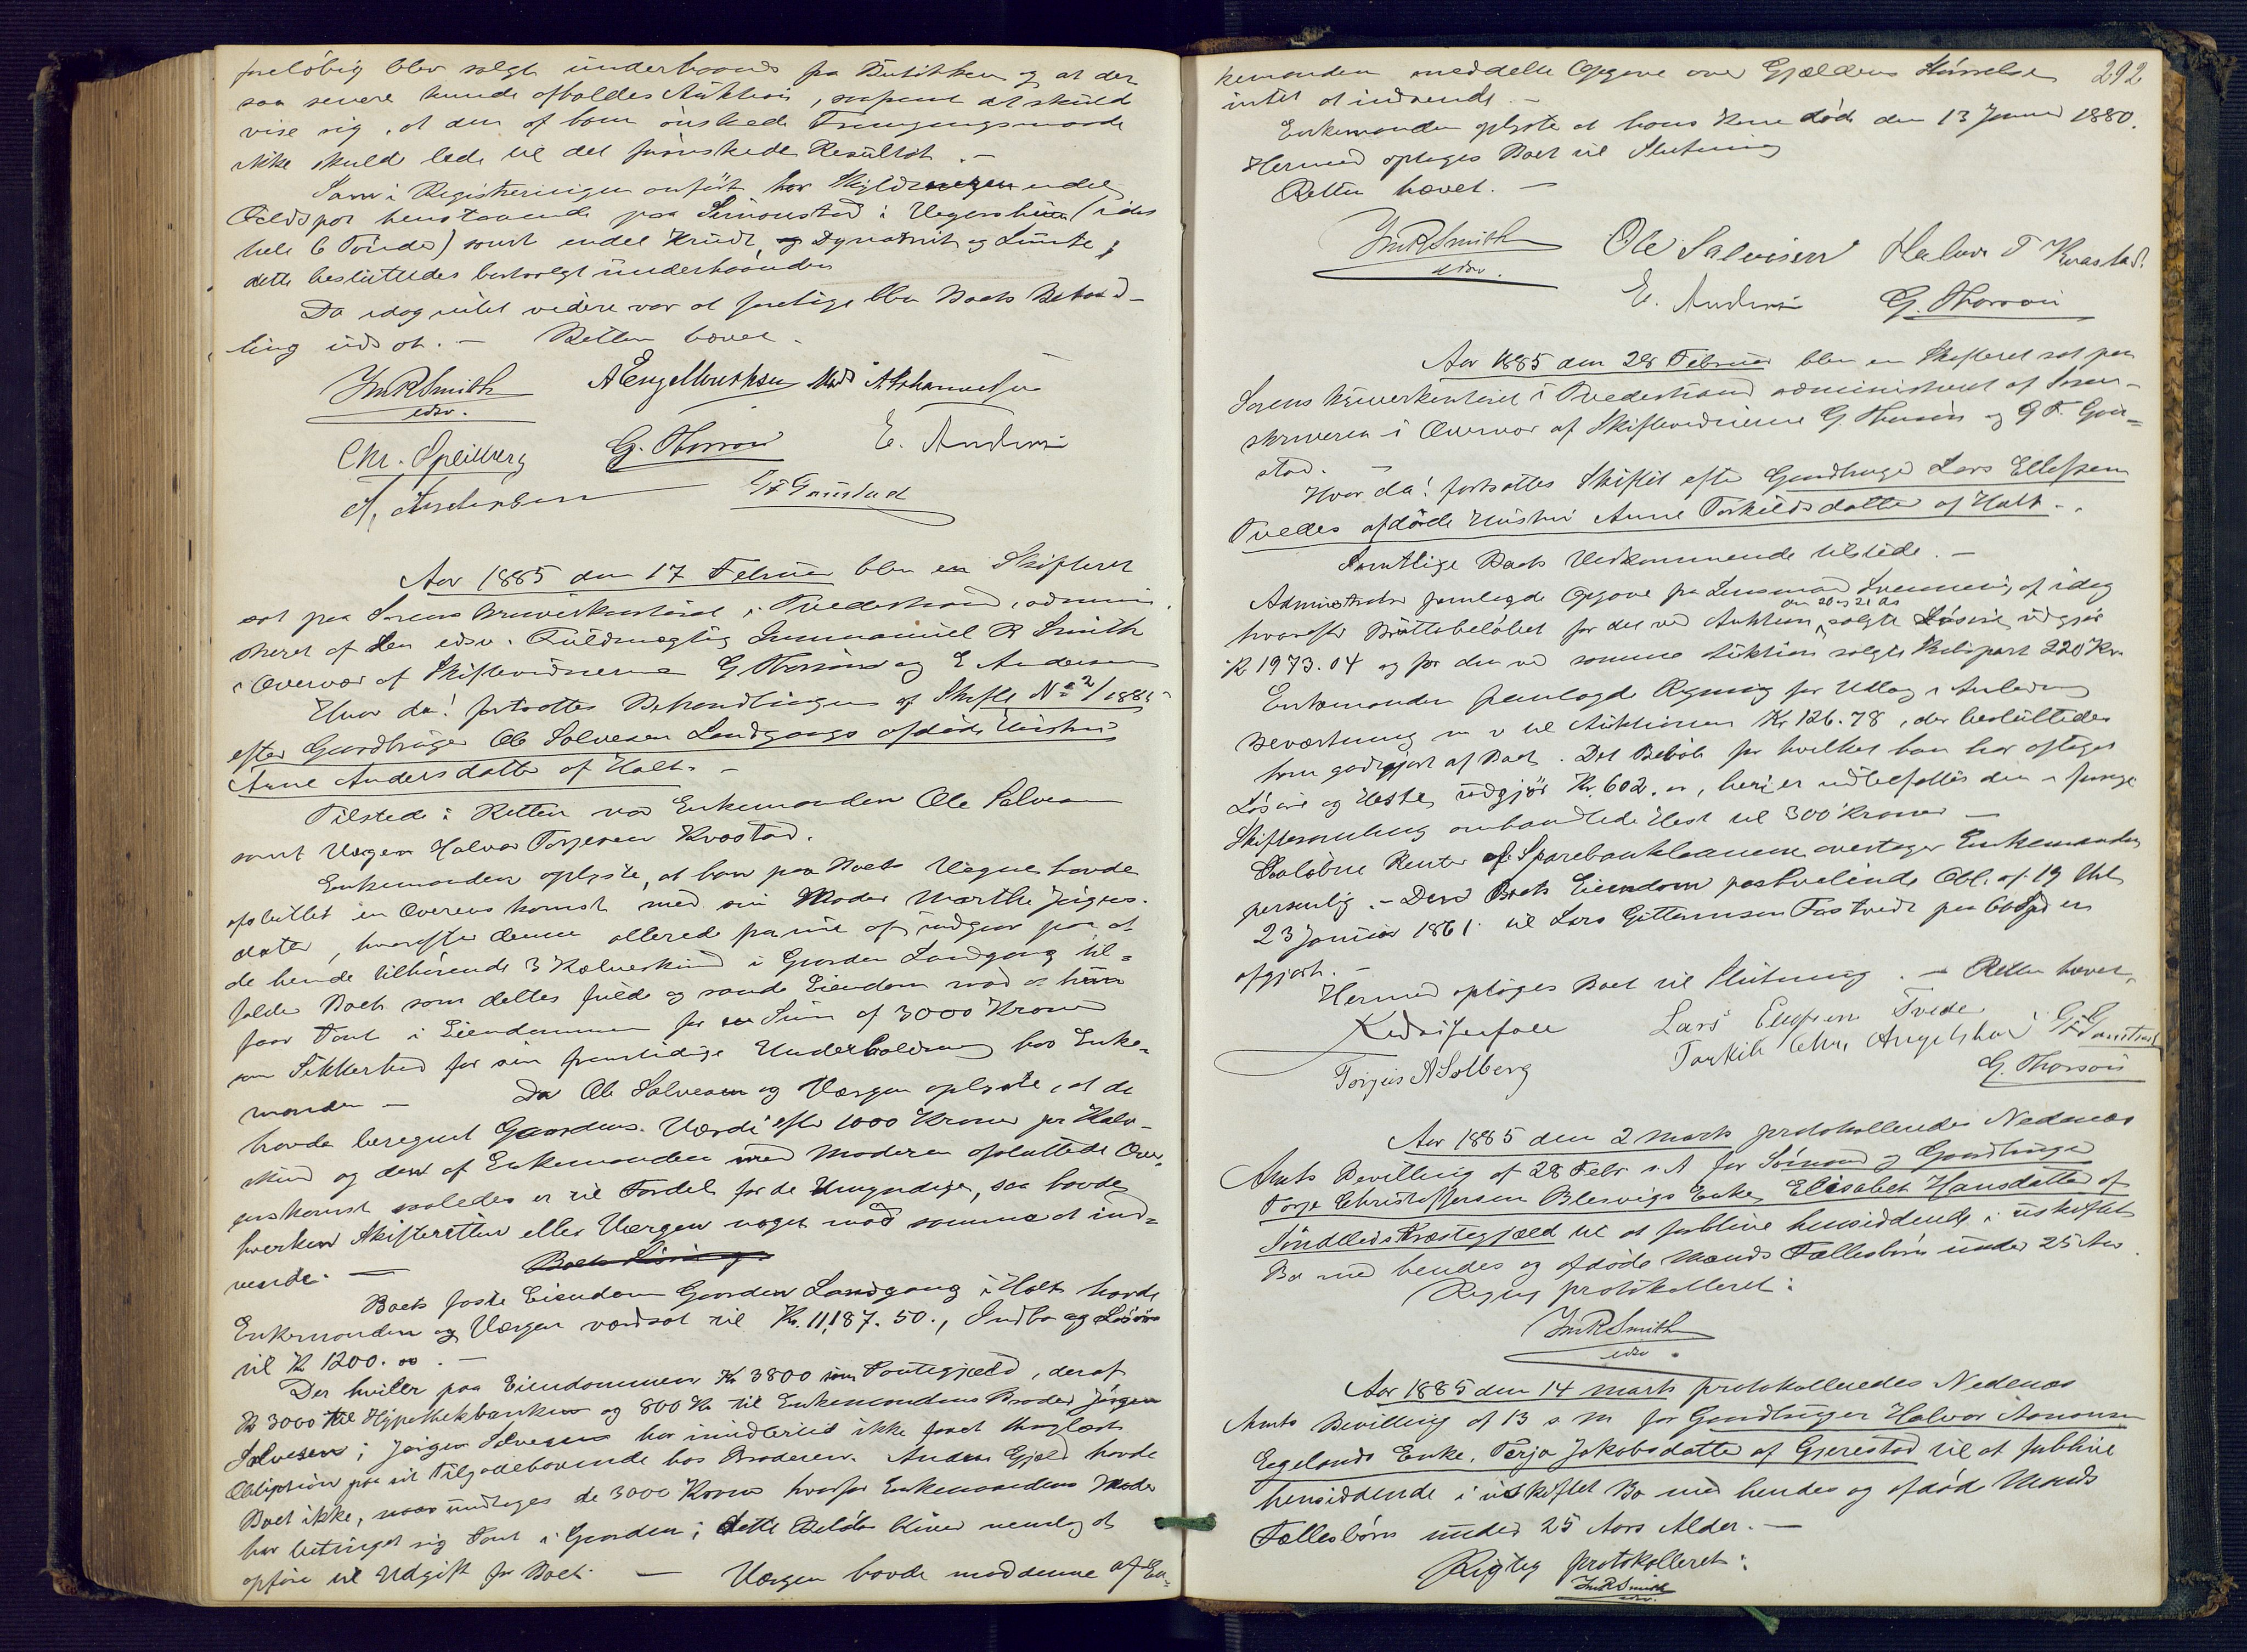 foreløbig blev solgt underhaands fra Butikken og at der
saa senere kunde afholdes Auktion, saafremt det skuld
vise sig, at den af ham ønskede Fremgangsmaade
ikke skuld lede til det forønskede Resultat. —
Som i Registreringen anført har endel
henstaaende paa Simonstad i Vegarshei (i det
hele 6 Tønder) samt endel Krudt, og Dynamit og Lunte;
dette besluttedes bortsolgt underhaanden
Da idag intet videre var at foretage blev Boets Behand-
ling udsat. — Retten hævet.
ImRSmith AEngelbrethsen Mads Abrahamsen
edsv.
Chr. Speilberg G. Thorsen E. Andersen
GF Goustad
Aar 1885 den 17 Februar blev en Skifteret
sat paa Sorenskriverkontoret i Tvedestrand, admini
streret af den edsv. Fuldmægtig Immanuel R Smith
i Overvær af Skiftevidnerne G Thorsen og E Andersen
Hvor da! fortsattes Behandlingen af Skifte No 2/1885
efter Gaardbruger Ole Salvesen Landgangs afdøde Hustru
Anne Andersdatter af Holt. —
Tilstede i Retten var Enkemanden Ole Salvesen
samt Værgen Halvor Torjesen Kvastad.
Enkemanden oplyste, at han paa Boets Vegne havde
afsluttet en Overenskomst med sin Moder Marthe Jørgens-
datter, hvorefter denne allerede fra nu af indgaar paa at
de hende tilhørende 3 Kalveskind i Gaarden Landgang til-
falder Boet som dettes fulde og sande Eiendom mod at hun
faar Pant i Eiendommen for en Sum af 3000 Kroner
som Sikkerhed for sin fremtidige Underholdning hos Enke-
manden — Da Ole Salvesen og Værgen oplyste, at de
havde beregnet Gaardens Værdi efter 1000 Kroner pr Kalv-
skind og den af Enkemanden med Moderen afsluttede Over-
enskomst saaledes er til Fordel for de Umyndige, saa havde
hverken Skifteretten eller Værgen noget mod samme at ind-
vende. —
Boets faste Eiendom Gaarden Landgang i Holt havde
Enkemanden og Værgen værdsat til Kr. 11,187.50., Indbo og Løsøre
til Kr 1200.00. —
Der hviler paa Eiendommen Kr 3800 som Pantegjæld, deraf
Kr 3000 til Hypothekbanken og 800 Kr til Enkemandens Broder Jørgen
Salvesen; Jørgen Salvesen har imidlertid ikke faaet thinglæst
Obligation paa sit Tilgodehavende hos Broderen. Anden Gjæld havde
Boet ikke, naar undtages de 3000 Kroner hvorfor Enkemandens Moder
har betinget sig Pant i Gaarden; dette Beløb bliver nemlig at
opføre til Udgift for Boet. — Værgen havde mod denne af En-
292
kemanden meddelte Opgave over Gjældens Størrelse
intet at indvende. —
Enkemanden oplyste at hans Kone døde den 13 Januar 1880.
Hermed optages Boet til Slutning
Retten hævet. —
ImRSmith Ole Salvesen Halvor T Kvastad.
edsv.
E. Andersen G. Thorsen
Aar 1885 den 28 Februar blev en Skifteret sat paa
Sorenskriverkontoret i Tvedestrand administreret af Soren-
skriveren i Overvær af Skiftevidnerne G. Thorsen og G F. Gou-
stad. —
Hvor da! fortsattes Skiftet efter Gaardbruger Lars Ellefsen
Tvedes afdøde Hustru Anne Torkildsdatter af Holt. .
Samtlige Boets Vedkommende tilstede. —
Administrator fremlagde Opgave fra Lensmand Svenning af idag
hvorefter Bruttobeløbet for det ved Auktion den 20 og 21 ds solgte Løsøre udgjør
Kr 1973.04 og for den ved samme Auktion solgte Skibspart 220 Kr.
Enkemanden fremlagde Regning for Udlæg i Anledning
Beværtning m v til Auktionen Kr. 126.78, der besluttedes
ham godtgjort af Boet. Det Beløb for hvilket han har overtaget
Løsøre og Heste, udgjør Kr. 602.00, heri er indbefattet den i forrige
Skiftesamling omhandlede Hest til 300 Kroner —
Paaløbne Renter af Sparebanklaanene overtager Enkemanden
personlig. — Den Boets Eiendom paahvilende Obl. af 19
23 Januar 1861 til Lars Guttormsen Fastvedt paa 60 Spd er
afgjort. —
Hermed optages Boet til Slutning. — Retten hævet.
Lars Ellefsen Tvede
Torkil Chr. Angelstad GFGoustad
Torjus A Solberg G. Thorsen
Aar 1885 den 2 Marts protokolleredes Nedenæs
Amts Bevilling af 28 Febr s. A for Sømand og Gaardbruger
Torje Christoffersen Blesvigs Enke, Elisabet Hansdatter af
Søndeleds Præstegjæld til at forblive hensiddende i uskiftet
Bo med hendes og afdøde Mands Fællesbørn under 25 Aar.
Rigtig protokolleret:
ImRSmith
edsv.
Aar 1885 den 14 Marts protokolleredes Nedenæs
Amts Bevilling af 13 s. M for Gaardbruger Halvor Aanonsen
Egelands Enke, Terja Jakobsdatter af Gjerestad til at forblive
hensiddende i uskiftet Bo med hendes og afdød Mands
Fællesbørn under 25 Aars Alder. —
Rigtig protokolleret:
ImRSmith
edsv.